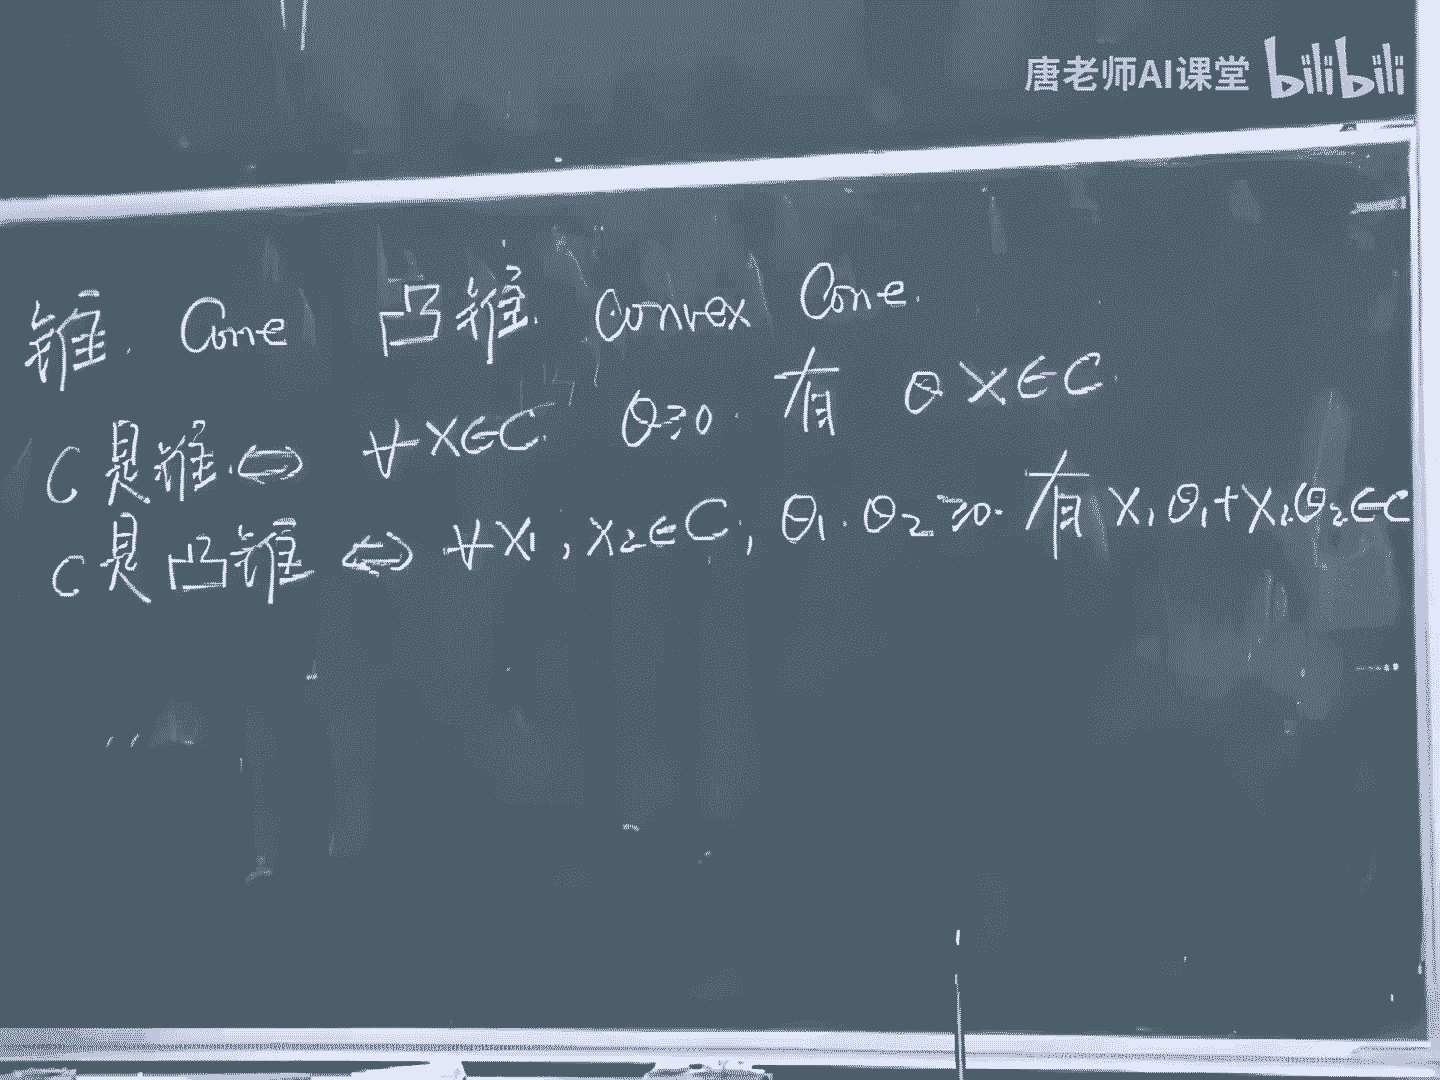 唐老师AI课堂 bilibili
锥. Cone 凸锥. Convex Cone.
C是锥.⇔ ∀X∈C. θ≥0. 有 θX∈C.
C是凸锥 ⇔ ∀X₁, X₂∈C, θ₁. θ₂≥0. 有 X₁θ₁+X₂θ₂∈C